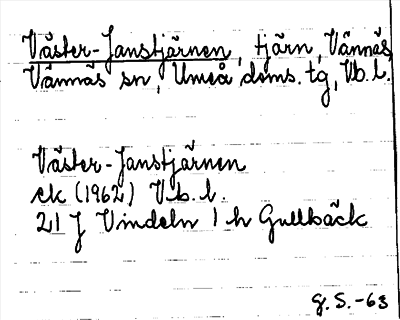 Väster-Janstjärnen, tjärn, Vännäs,
Vännäs sn, Umeå doms. tg, Vb. l.
Väster-Janstjärnen
ek (1962) V.b.l.
21 J Vindeln 1 h Gullbäck
G.S.-63